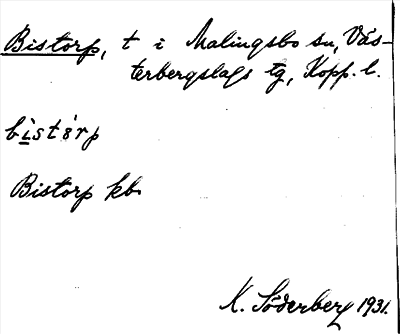 Bistorp, t i Malingsbo sn, Väs-
terbergslags tg, Kopp. l.
bìstòrp
Bistorp kb
K. Söderberg 1931.